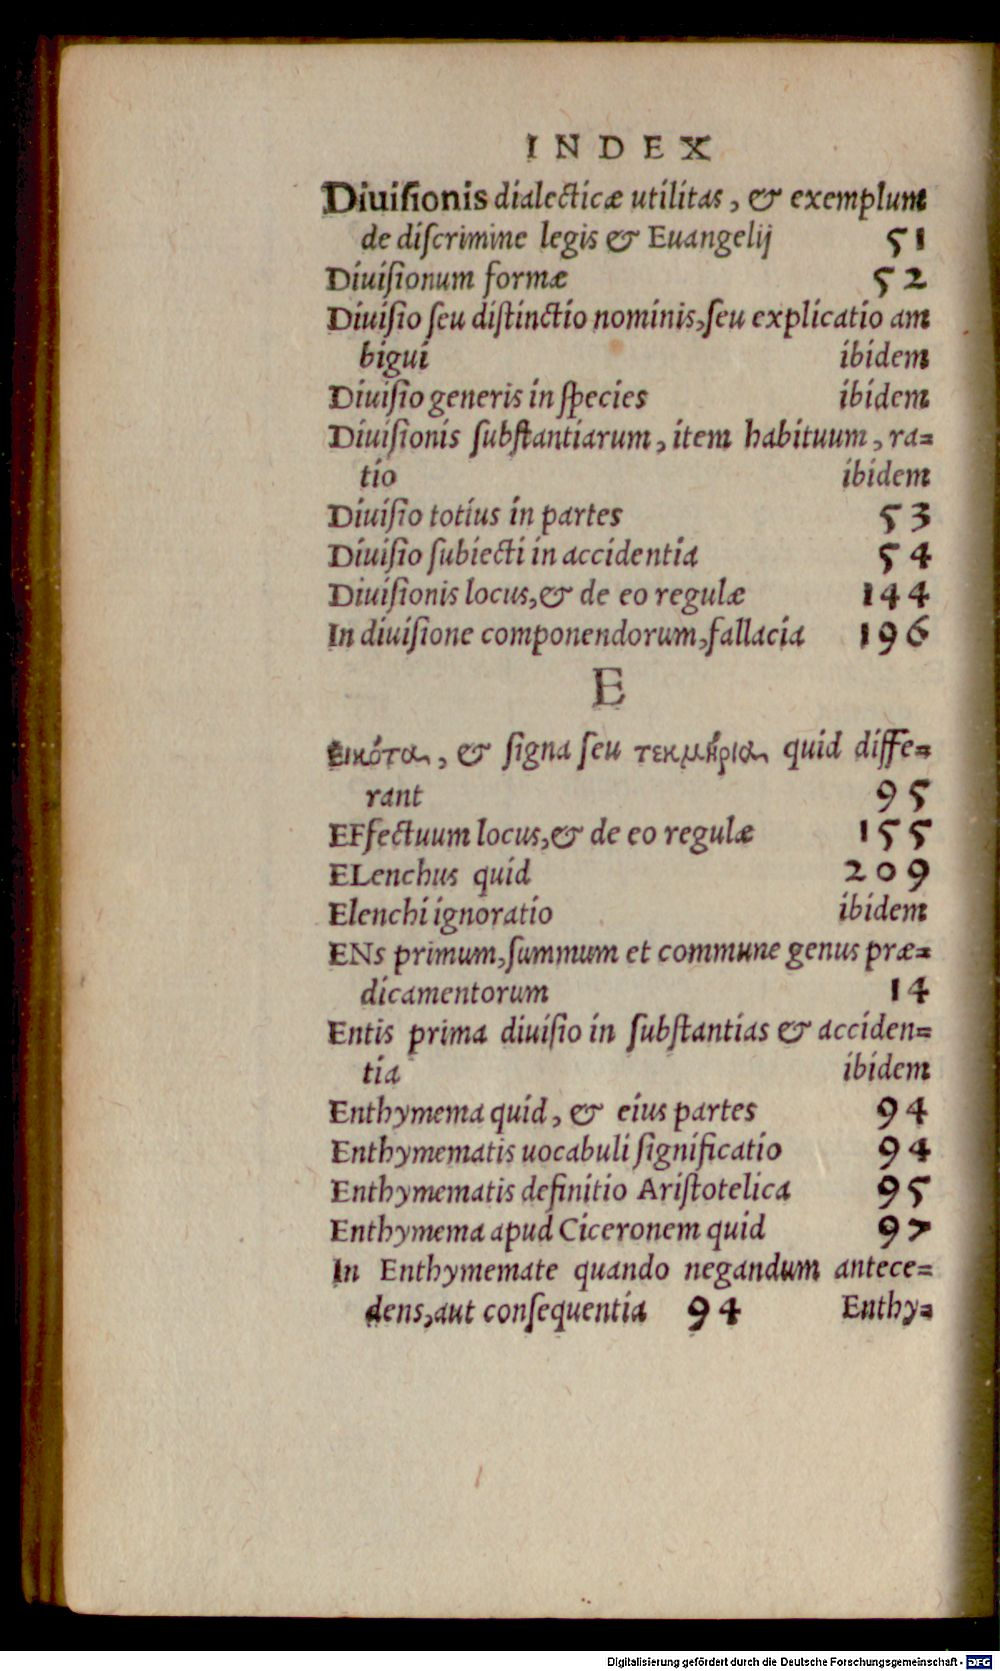 INDEX
Diuiſionis dialecticæ utilitas, & exemplum
de diſcrimine legis & Euangelij 51
Diuiſionum formæ 52
Diuiſio ſeu diſtinctio nominis, ſeu explicatio am
bigui ibidem
Diuiſio generis in ſpecies ibidem
Diuiſionis ſubſtantiarum, item habituum, ra=
tio ibidem
Diuiſio totius in partes 53
Diuiſio ſubiecti in accidentia 54
Diuiſionis locus, & de eo regulæ 144
In diuiſione componendorum, fallacia 196
E
εἰκότα, & ſigna ſeu τεκμήρια quid diffe=
rant 95
EFfectuum locus, & de eo regulæ 155
ELenchus quid 209
Elenchi ignoratio ibidem
ENs primum, ſummum et commune genus præ=
dicamentorum 14
Entis prima diuiſio in ſubſtantias & acciden=
tia ibidem
Enthymema quid, & eius partes 94
Enthymematis uocabuli ſignificatio 94
Enthymematis definitio Ariſtotelica 95
Enthymema apud Ciceronem quid 97
In Enthymemate quando negandum antece=
dens, aut conſequentia 94 Enthy=
Digitalisierung gefördert durch die Deutsche Forschungsgemeinschaft - DFG